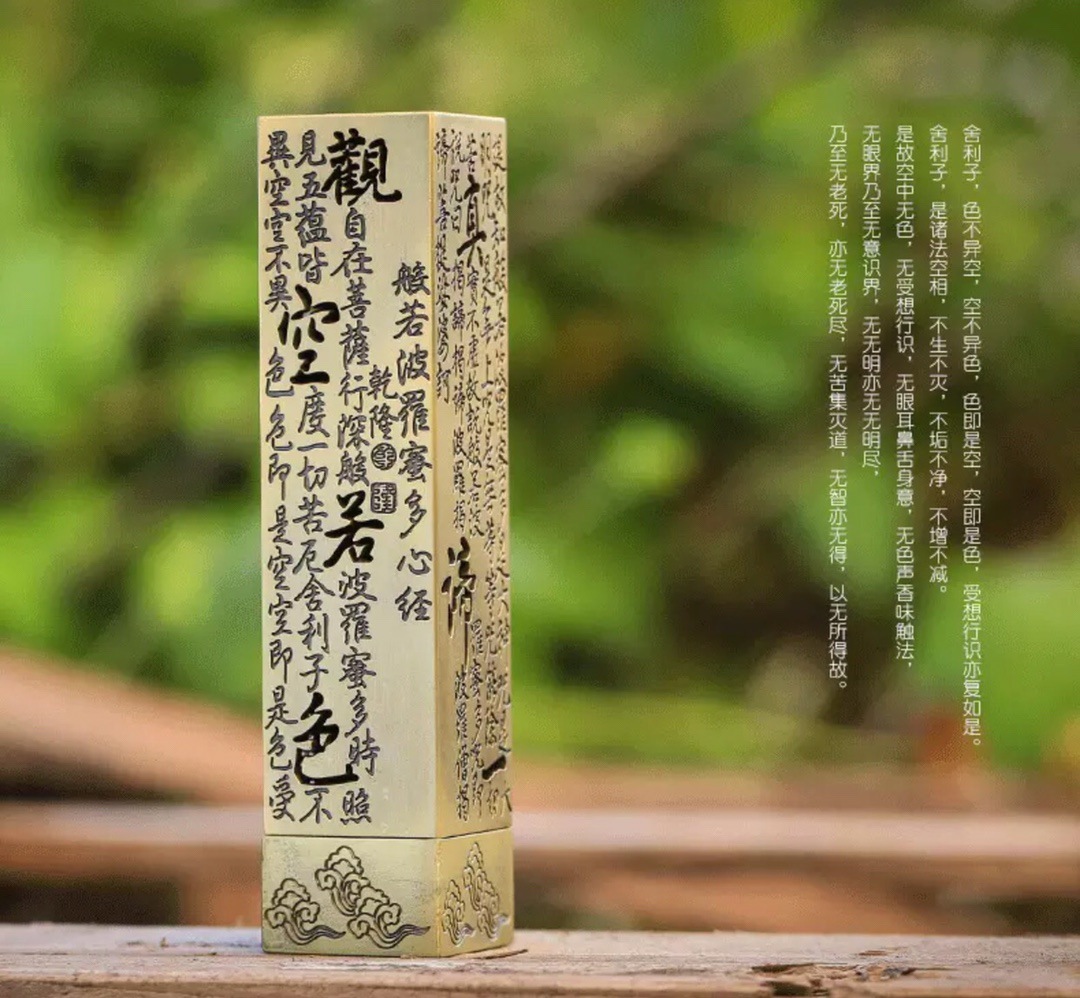 般若波羅蜜多心经
乾隆
觀自在菩薩行深般若波羅蜜多時照
見五蕴皆空度一切苦厄舍利子色不
異空空不異色色即是空空即是色受
苦真實不虛故說般若波羅蜜多咒即
說咒曰揭諦揭諦波羅揭諦波羅僧揭
舍利子，色不异空，空不异色，色即是空，空即是色，受想行识亦复如是。
舍利子，是诸法空相，不生不灭，不垢不净，不增不减。
是故空中无色，无受想行识，无眼耳鼻舌身意，无色声香味触法，
无眼界乃至无意识界，无无明亦无无明尽，
乃至无老死，亦无老死尽，无苦集灭道，无智亦无得，以无所得故。